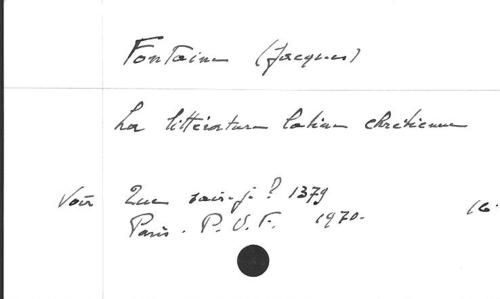 Fontaine (Jacques)
La littérature latine chrétienne
Voir Que sais-je? 1379
Paris. P.U.F. 1970. 16°